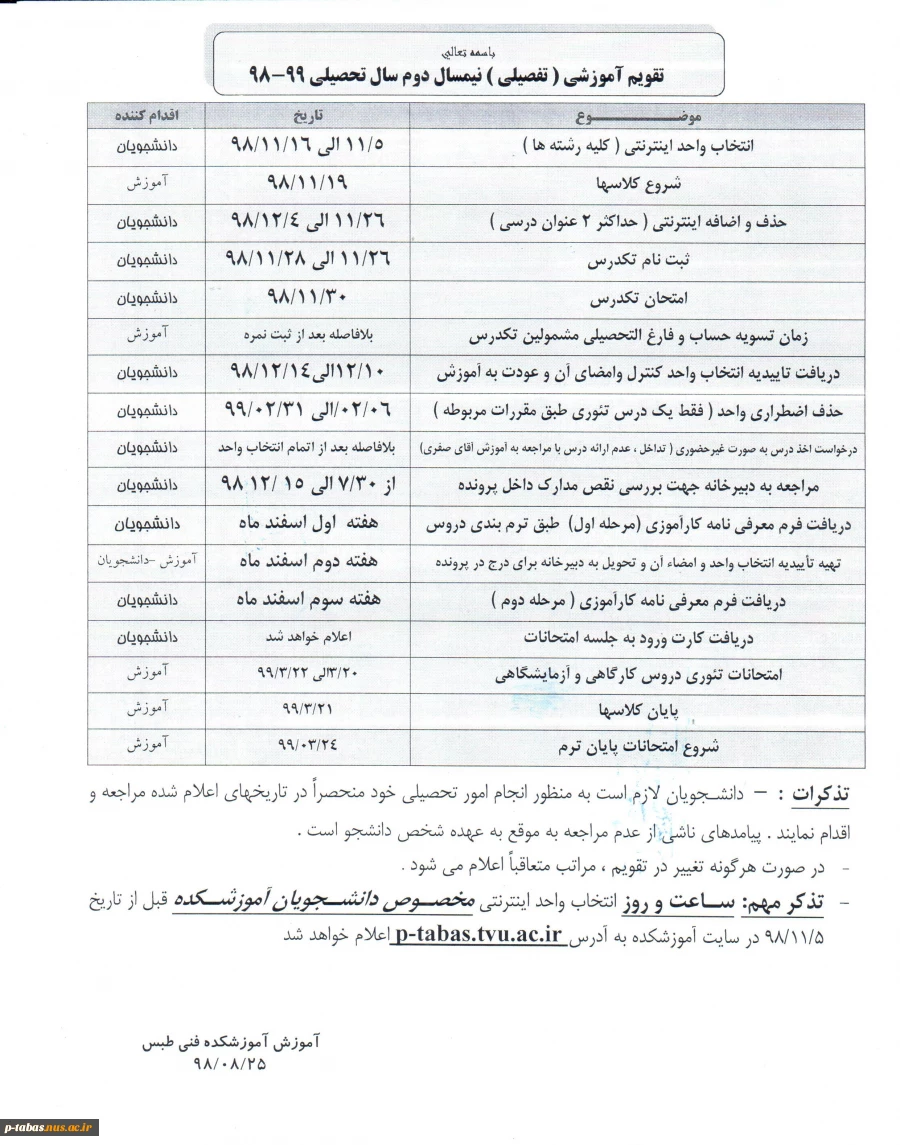 باسمه تعالي
تقویم آموزشی ( تفصیلی ) نیمسال دوم سال تحصیلی ۹۹-۹۸
موضـــــــــوع تاریخ اقدام کننده
انتخاب واحد اینترنتی ( کلیه رشته ها ) ۱۱/۵ الی ۹۸/۱۱/۱۶ دانشجویان
شروع کلاسها ۹۸/۱۱/۱۹ آموزش
حذف و اضافه اینترنتی ( حداکثر ۲ عنوان درسی ) ۱۱/۲۶ الی ۹۸/۱۲/۴ دانشجویان
ثبت نام تکدرس ۱۱/۲۶ الی ۹۸/۱۱/۲۸ دانشجویان
امتحان تکدرس ۹۸/۱۱/۳۰ دانشجویان
زمان تسویه حساب و فارغ التحصیلی مشمولین تکدرس بلافاصله بعد از ثبت نمره آموزش
دریافت تاییدیه انتخاب واحد کنترل وامضای آن و عودت به آموزش ۱۲/۱۰الی۹۸/۱۲/۱۴ دانشجویان
حذف اضطراری واحد ( فقط یک درس تئوری طبق مقررات مربوطه ) ۰۲/۰۶/الی ۹۹/۰۲/۳۱ دانشجویان
درخواست اخذ درس به صورت غیرحضوری ( تداخل ، عدم ارائه درس با مراجعه به آموزش آقای صفری) بلافاصله بعد از اتمام انتخاب واحد دانشجویان
مراجعه به دبیرخانه جهت بررسی نقص مدارک داخل پرونده از ۷/۳۰ الی ۱۵ /۱۲ ۹۸ دانشجویان
دریافت فرم معرفی نامه کارآموزی (مرحله اول) طبق ترم بندی دروس هفته اول اسفند ماه دانشجویان
تهیه تأییدیه انتخاب واحد و امضاء آن و تحویل به دبیرخانه برای درج در پرونده هفته دوم اسفند ماه آموزش -دانشجویان
دریافت فرم معرفی نامه کارآموزی ( مرحله دوم ) هفته سوم اسفند ماه دانشجویان
دریافت کارت ورود به جلسه امتحانات اعلام خواهد شد دانشجویان
امتحانات تئوری دروس کارگاهی و آزمایشگاهی ۳/۲۰الی ۹۹/۳/۲۲ آموزش
پایان کلاسها ۹۹/۳/۲۱ آموزش
شروع امتحانات پایان ترم ۹۹/۰۳/۲۴ آموزش
تذکرات : - دانشـجویان لازم است به منظور انجام امور تحصیلی خود منحصراً در تاریخهای اعلام شده مراجعه و
اقدام نمایند . پیامدهای ناشی از عدم مراجعه به موقع به عهده شخص دانشجو است .
- در صورت هرگونه تغییر در تقویم ، مراتب متعاقباً اعلام می شود .
- تذکر مهم: ساعت و روز انتخاب واحد اینترنتی مخصوص دانشجویان آموزشکده قبل از تاریخ
۹۸/۱۱/۵ در سایت آموزشکده به آدرس p-tabas.tvu.ac.ir اعلام خواهد شد
آموزش آموزشکده فنی طبس
۹۸/۰۸/۲۵
p-tabas.nus.ac.ir